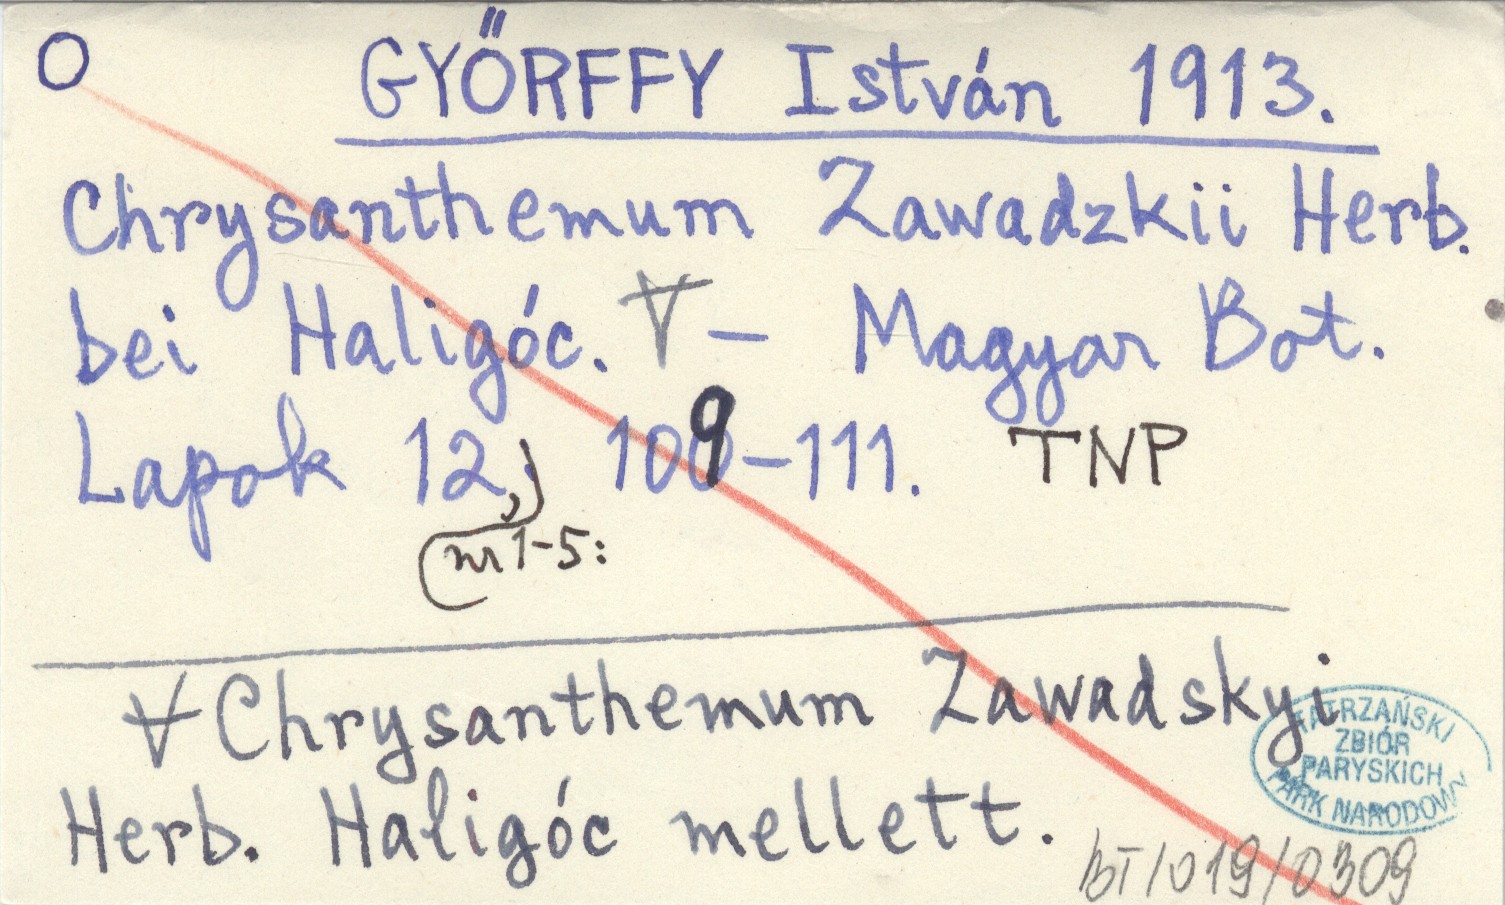 O GYŐRFFY István 1913.
Chrysanthemum Zawadzkii Herb.
bei Haligóc. ∀ – Magyar Bot.
Lapok 12, 109–111. TNP
nr 1-5:
∀ Chrysanthemum Zawadskyi
Herb. Haligóc mellett.
TATRZAŃSKI
ZBIÓR
PARYSKICH
PARK NARODOWY
BT/019/0309